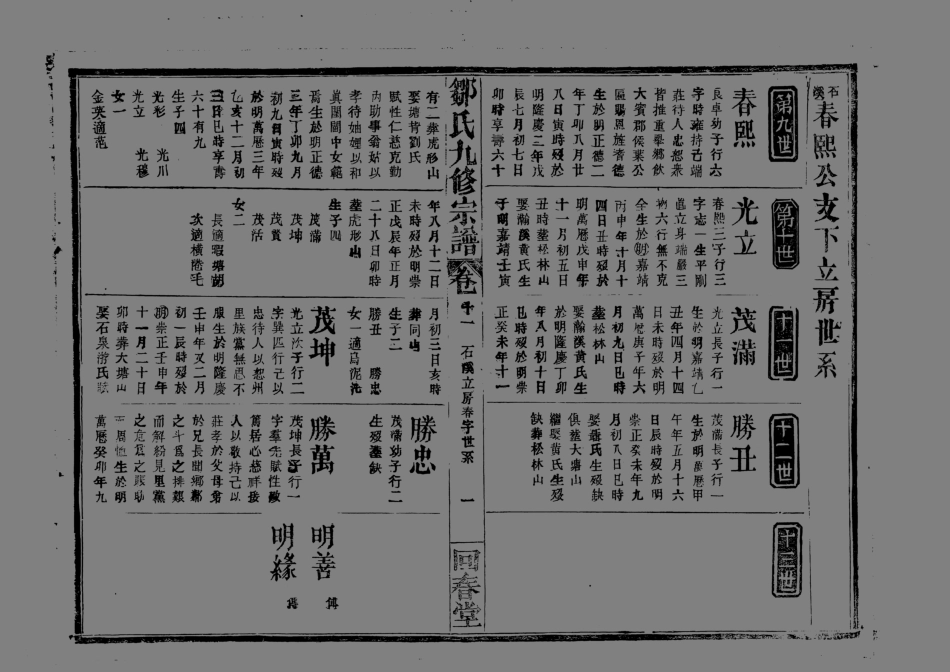 石溪
春熙公支下立房世系
第九世
春熙
良卓幼子行六
字時雍持己端
莊待人忠恕衆
皆推重舉鄉飲
大賓郡侯葉公
匾賜恩旌耆德
生於明正德二
年丁卯八月廿
八日寅時歿於
明隆慶二年戊
辰七月初七日
卯時享壽六十
第十世
光立
春熙三子行三
字志一生平剛
直立身端嚴三
物六行無不克
全生於明嘉靖
丙申年十月十
四日丑時歿於
明萬曆戊申年
十一月初五日
丑時葬松林山
娶瀚溪黃氏生
于明嘉靖壬寅
十一世
茂滿
光立長子行一
生於明嘉靖乙
丑年四月十四
日未時歿於明
萬曆庚子年六
月初九日巳時
葬松林山
娶瀚溪黃氏生
於明隆慶丁卯
年八月初十日
巳時歿於明崇
正癸未年十一
十二世
勝丑
茂滿長子行一
生於明萬曆甲
午年五月十六
日辰時歿於明
崇正癸未年九
月初八日巳時
娶聶氏生歿缺
俱葬大塘山
繼娶黃氏生歿
缺葬松林山
十三世
鄒氏九修宗譜
卷
石溪立房春字世系
一
回春堂
有二葬虎形山
娶塘背劉氏
賦性仁慈克勤
內助事翁姑以
孝待妯娌以和
真閨閫中女範
焉生於明正德
三年丁卯九月
初九日寅時歿
於明萬曆三年
乙亥十二月初
三日巳時享壽
六十有九
生子四
光杉 光川
光立 光穆
女一
金英適范
年八月十二日
未時歿於明崇
正戊辰年正月
二十八日卯時
葬虎形山
生子四
茂滿
茂坤
茂賢
茂活
女二
長適瑕塘胡
次適橫陂毛
月初三日亥時
葬同山
生子二
勝丑 勝忠
女一適烏泥沈
茂坤
光立次子行二
字巽四行己以
忠待人以恕州
里族黨無思不
服生於明隆慶
壬申年又二月
初一辰時歿於
明崇正壬申年
十一月二十日
卯時葬大塘山
娶石泉游氏歿
勝忠
茂滿幼子行二
生歿葬缺
勝萬
茂坤長子行一
字羣先賦性敏
篤居心慈祥接
人以敬持己以
莊孝於父母友
於兄長聞鄉鄰
之斗爲之排難
而解紛見里黨
之危爲之賑助
而周恤生於明
萬曆癸卯年九
明善 傳
明緣 傳